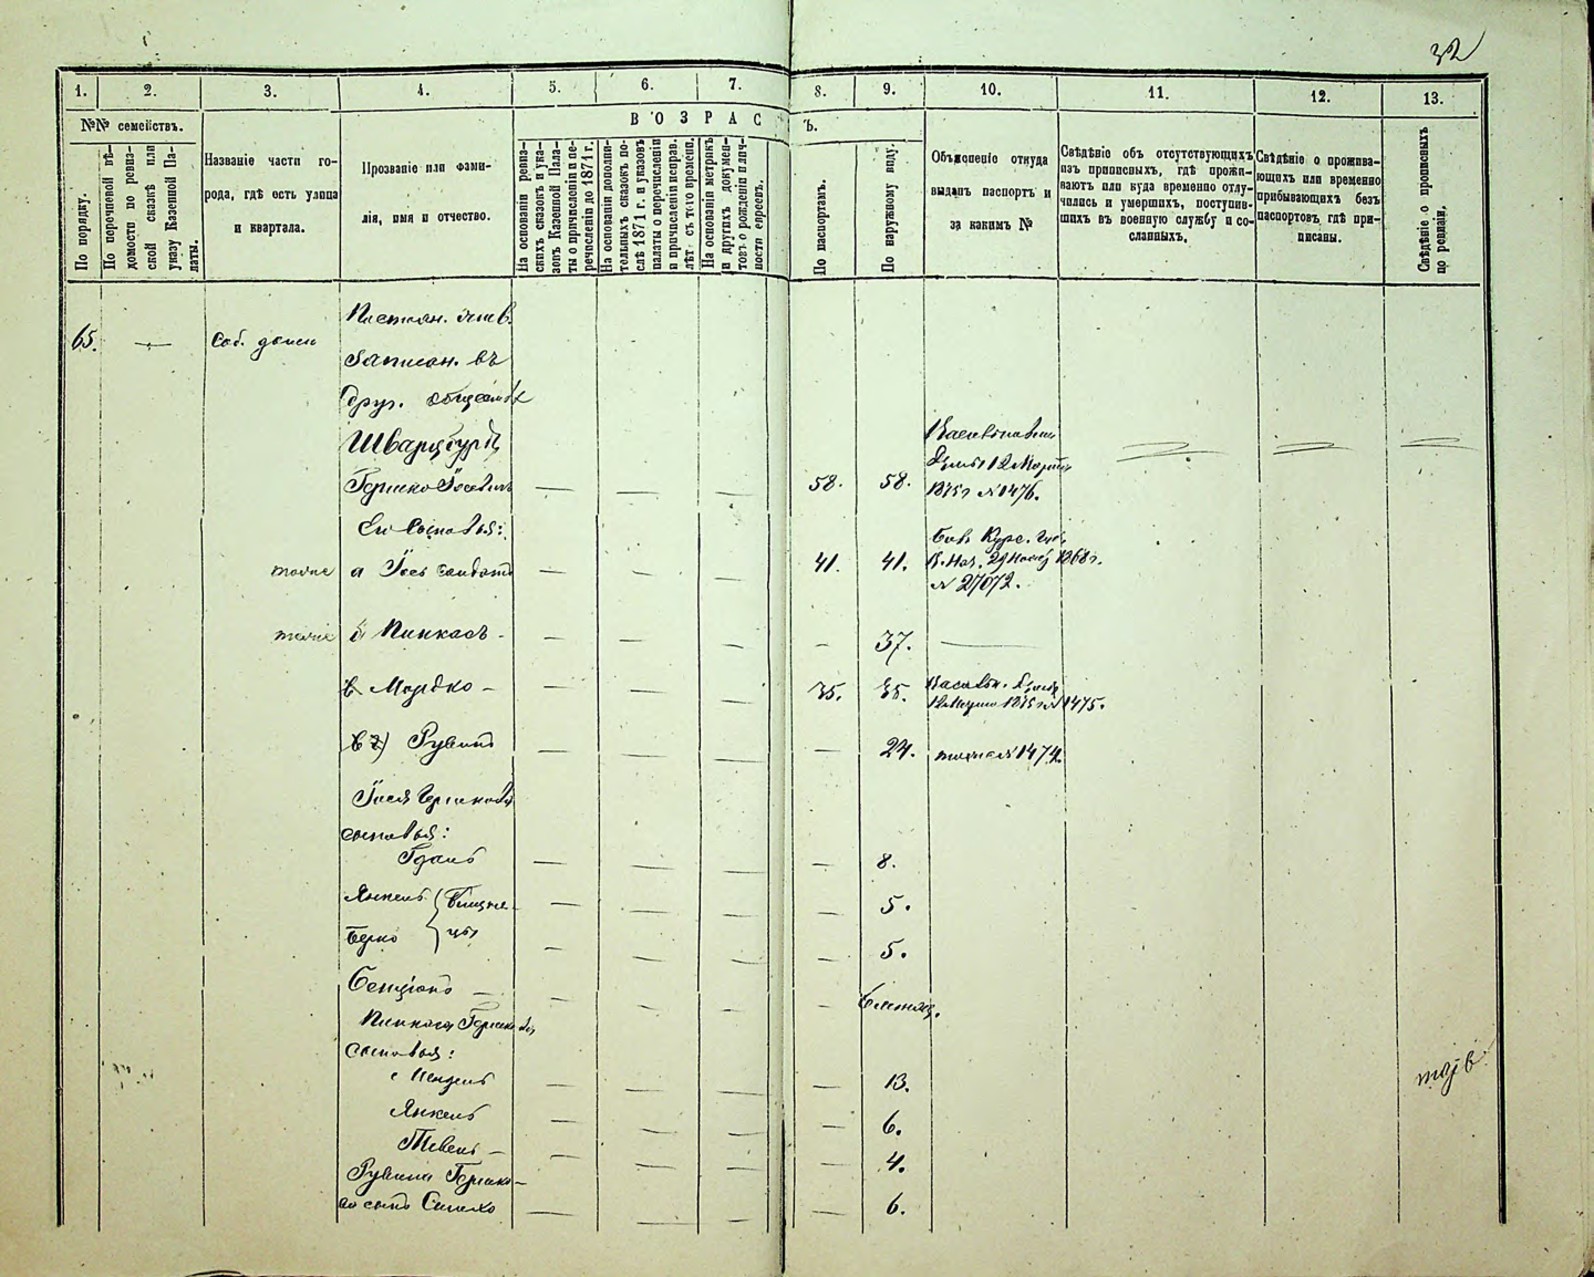 32
1. 2. 3. 4. 5. 6. 7. 8. 9. 10. 11. 12. 13.
№№ семействъ.
По порядку.
По перечневой вѣ-
домости по ревиз-
ской сказкѣ или
указу Казенной Па-
латы.
Названіе части го-
рода, гдѣ есть улица
и квартала.
Прозваніе или фами-
лія, имя и отчество.
ВОЗРАСТЪ.
На основаніи ревиз-
скихъ сказокъ и ука-
зовъ Казенной Пала-
ты о причисленіи и пе-
речисленіи до 1871 г.
На основаніи дополни-
тельныхъ сказокъ по-
слѣ 1871 г. и указовъ
палаты о перечисленіи
и причисленіи исправ.
лѣт съ того времени.
На основаніи метрикъ
и другихъ докумен-
товъ о рожденіи и лич-
ности евреевъ.
По паспортамъ.
По наружному виду.
Объясненіе откуда
выданъ паспортъ и
за какимъ №
Свѣдѣніе объ отсутствующихъ
изъ приписныхъ, гдѣ прожи-
ваютъ или куда временно отлу-
чились и умершихъ, поступив-
шихъ въ военную службу и со-
сланныхъ.
Свѣдѣніе о прожива-
ющихъ или временно
прибывающихъ безъ
паспортовъ, гдѣ при-
писаны.
Свѣдѣніе о прописныхъ
по ревизіи.
65. — Соб. домъ
Записан. въ
друг. обществах
Шварцбурдъ
Гершко Іосевичъ — — — 58. 58.
12 Марта
1875 г № 1476.
Его сыновья:
тоже а Іось солдатъ — — — 41. 41. 1868 г.
№ 27072.
тоже б Пинкасъ — — — — 37. —
в Мордко — — — 35. 35. 1875 г № 1475.
г) Рувинъ — — — — 24. тоже № 1474.
Іося Гершкова
сыновья:
— — — — 8.
Янкель — — — — 5.
Берко Близне-
цы — — — — 5.
Бенціонъ — — — —
Пинкаса Гершкова
сыновья:
Мендель — — — — 13.
Янкель — — — — 6.
— — — — 4.
Рувина Гершко-
ва сынъ — — — — 6.